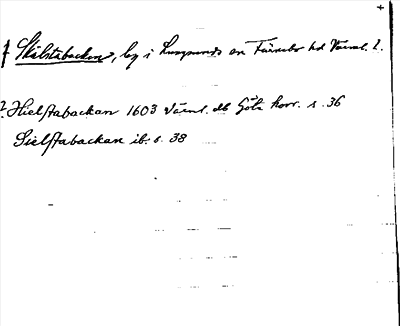 † Skälstabacken, by i Lungsunds sn Färnebo hd Värml. l.
? Hielstabackan 1603 Värml. db Göta hovr. s. 36
Sielstabackan ib. s. 38